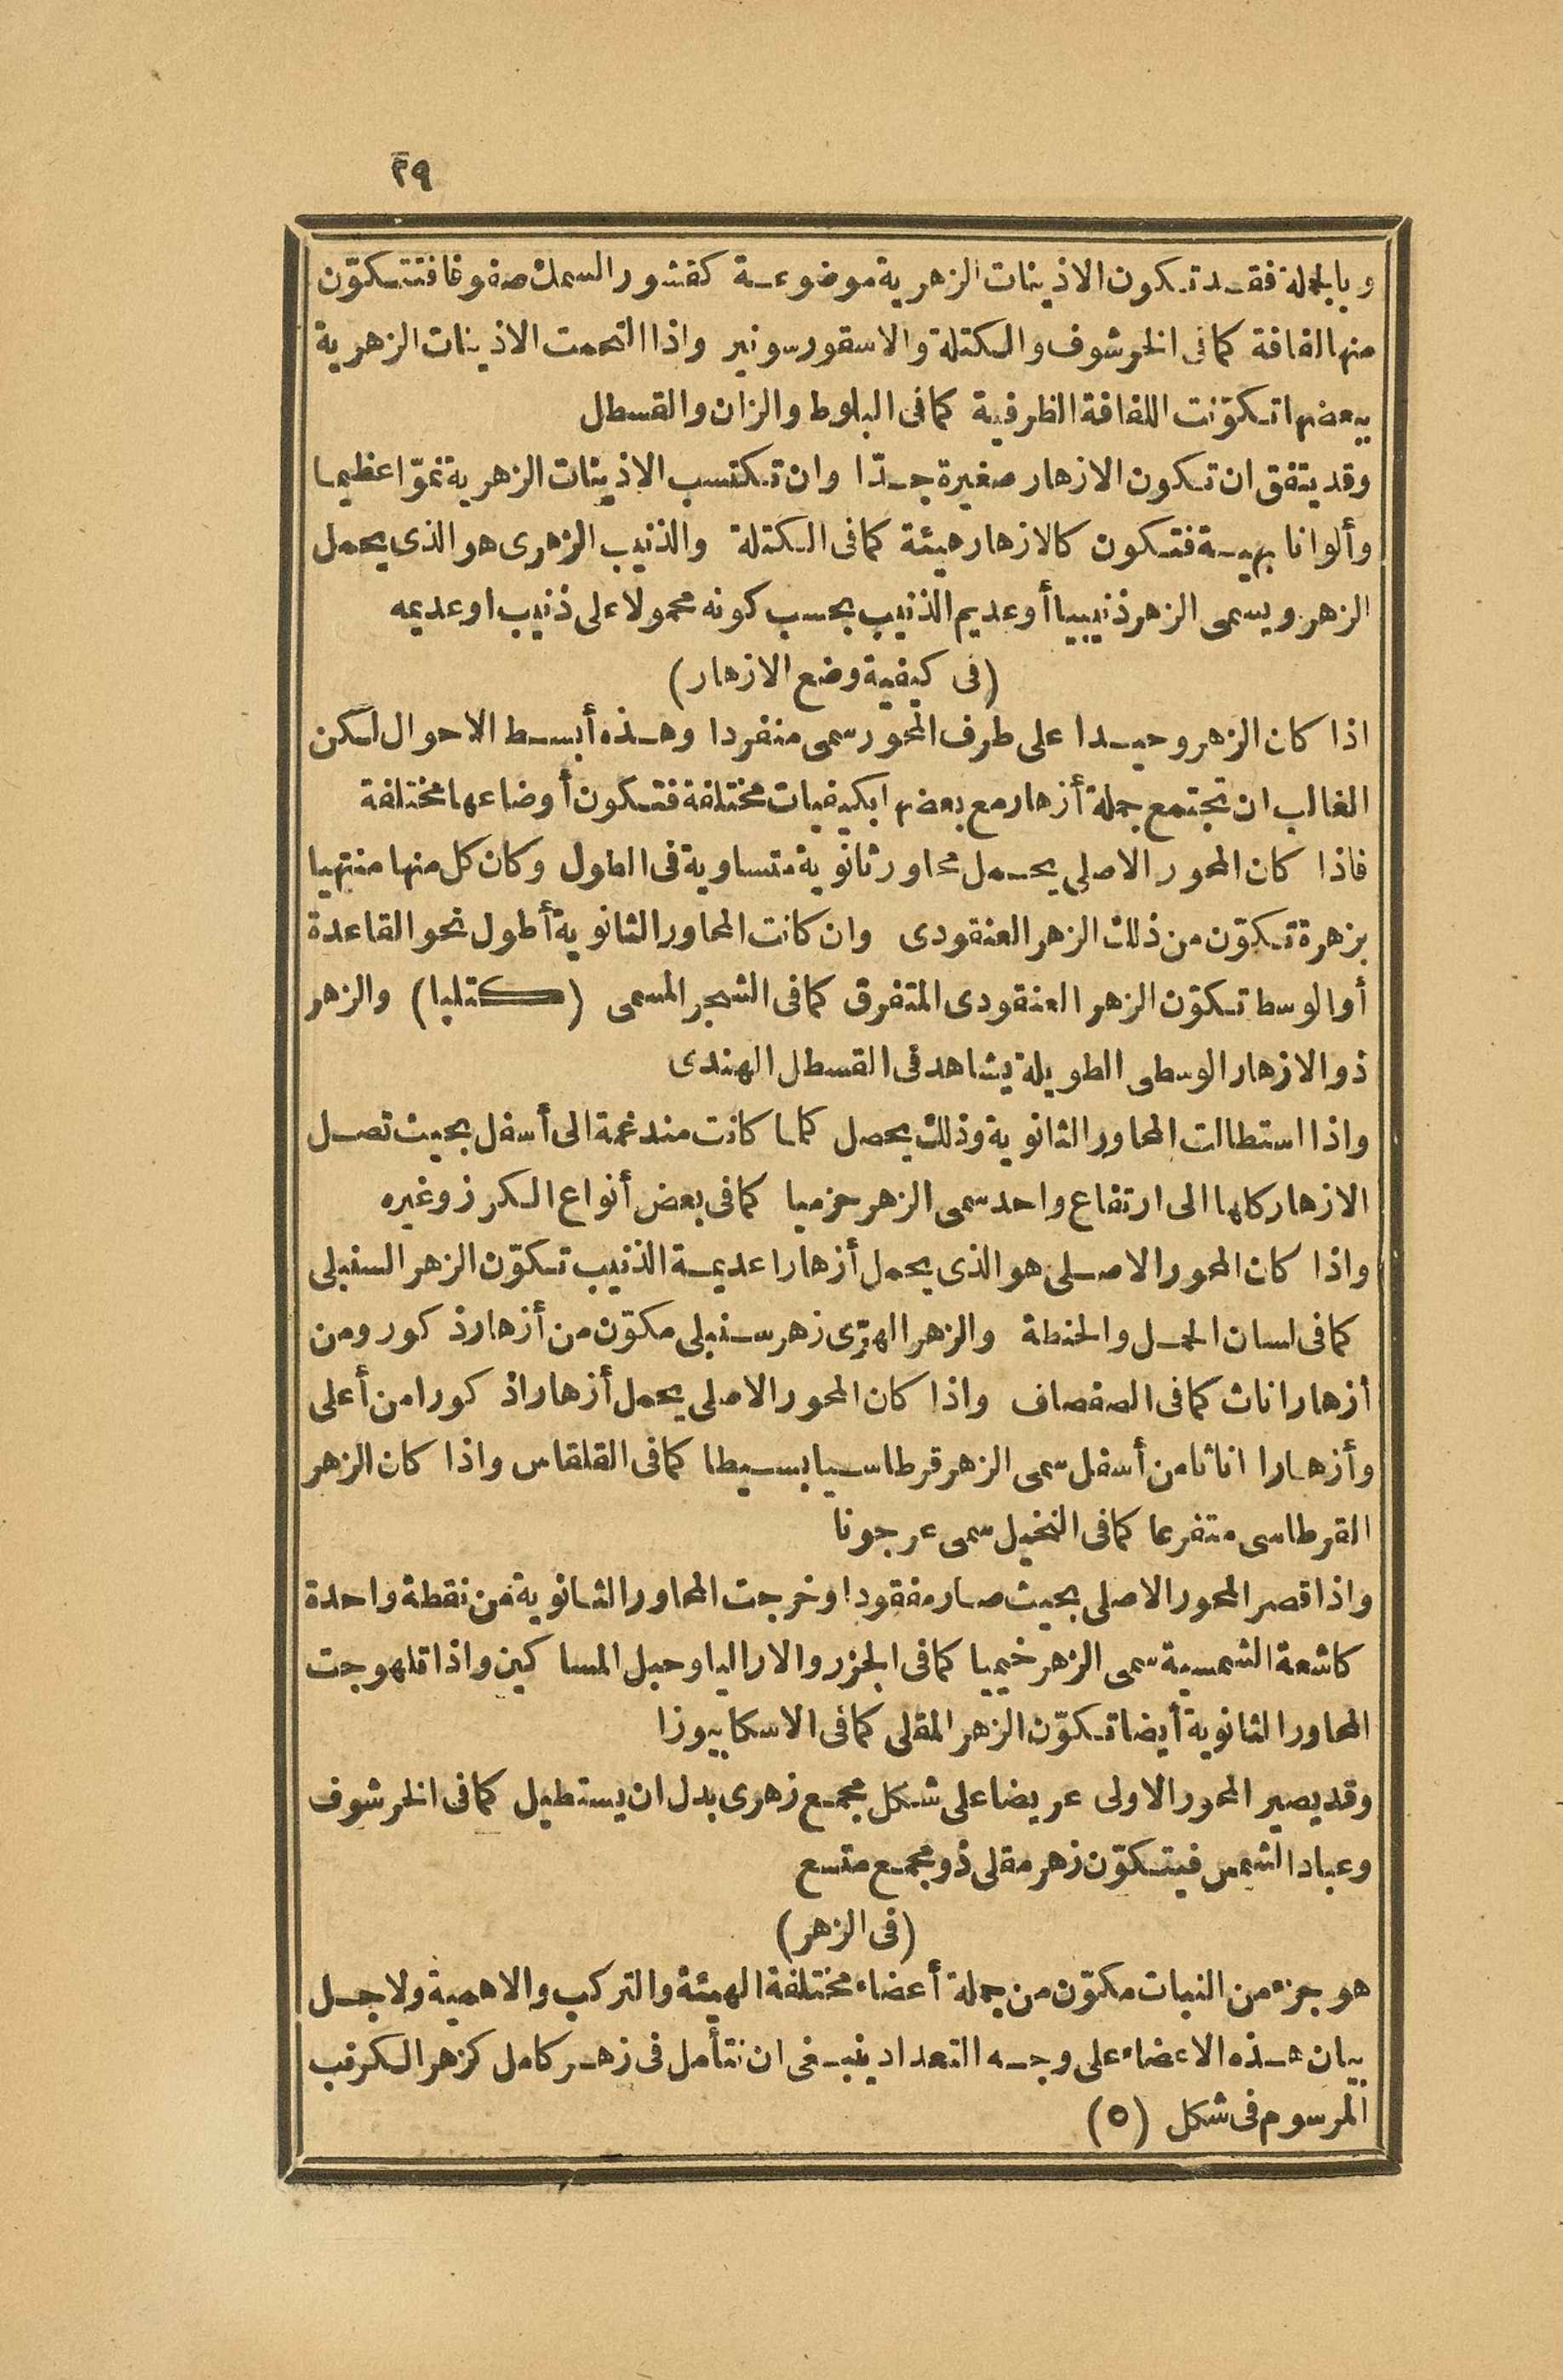 ٢٩
وبالجملة فقد تكون الاذينات الزهرية موضوعة كقشور السمك صفوفا فتتكوّن
منها لفافة كما فى الخرشوف والكتلة والاسقورسونير واذا التحمت الاذينات الزهرية
ببعضها تكوّنت اللفافة الظرفية كما فى البلوط والزان والقسطل
وقد يتفق ان تكون الازهار صغيرة جدّا وان تكتسب الاذينات الزهرية نموّا عظيما
وألوانا بهية فتكون كالازهار هيئة كما فى الكتلة والذنيب الزهرى هو الذى يحمل
الزهر ويسمى الزهر ذنيبيا أو عديم الذنيب بحسب كونه محمولا على ذنيب او عديمه
(فى كيفية وضع الازهار)
اذا كان الزهر وحيدا على طرف المحور سمى منفردا وهذه أبسط الاحوال لكن
الغالب ان تجتمع جملة أزهار مع بعضها بكيفيات مختلفة فتكون أوضاعها مختلفة
فاذا كان المحور الاصلى يحمل محاور ثانوية متساوية فى الطول وكان كل منها منتهيا
بزهرة تكوّن من ذلك الزهر العنقودى وان كانت المحاور الثانوية أطول نحو القاعدة
أو الوسط تكوّن الزهر العنقودى المتفرق كما فى الشجر المسمى (كتلپا) والزهر
ذو الازهار الوسطى الطويلة يشاهد فى القسطل الهندى
واذا استطالت المحاور الثانوية وذلك يحصل كلما كانت مندغمة الى أسفل بحيث تصل
الازهار كلها الى ارتفاع واحد سمى الزهر حزميا كما فى بعض أنواع الكرز وغيره
واذا كان المحور الاصلى هو الذى يحمل أزهارا عديمة الذنيب تكوّن الزهر السنبلى
كما فى لسان الحمل والحنطة والزهر الهرّى زهر سنبلى مكوّن من أزهار ذكور ومن
أزهار اناث كما فى الصفصاف واذا كان المحور الاصلى يحمل أزهارا ذكورا من أعلى
وأزهارا اناثا من أسفل سمى الزهر قرطاسيا بسيطا كما فى القلقاس واذا كان الزهر
القرطاسى متفرعا كما فى النخيل سمى عرجونا
واذا قصر المحور الاصلى بحيث صار مفقودا وخرجت المحاور الثانوية من نقطة واحدة
كاشعة الشمسية سمى الزهر خيميا كما فى الجزر والاراليا وحبل المساكين واذا تلهوجت
المحاور الثانوية أيضا تكوّن الزهر المقلى كما فى الاسكابيوزا
وقد يصير المحور الاولى عريضا على شكل مجمع زهرى بدل ان يستطيل كما فى الخرشوف
وعباد الشمس فيتكوّن زهر مقلى ذو مجمع متسع
(فى الزهر)
هو جزء من النبات مكوّن من جملة أعضاء مختلفة الهيئة والتركب والاهمية ولاجل
بيان هذه الاعضاء على وجه التعداد ينبغى ان نتأمل فى زهر كامل كزهر الكرنب
المرسوم فى شكل (٥)